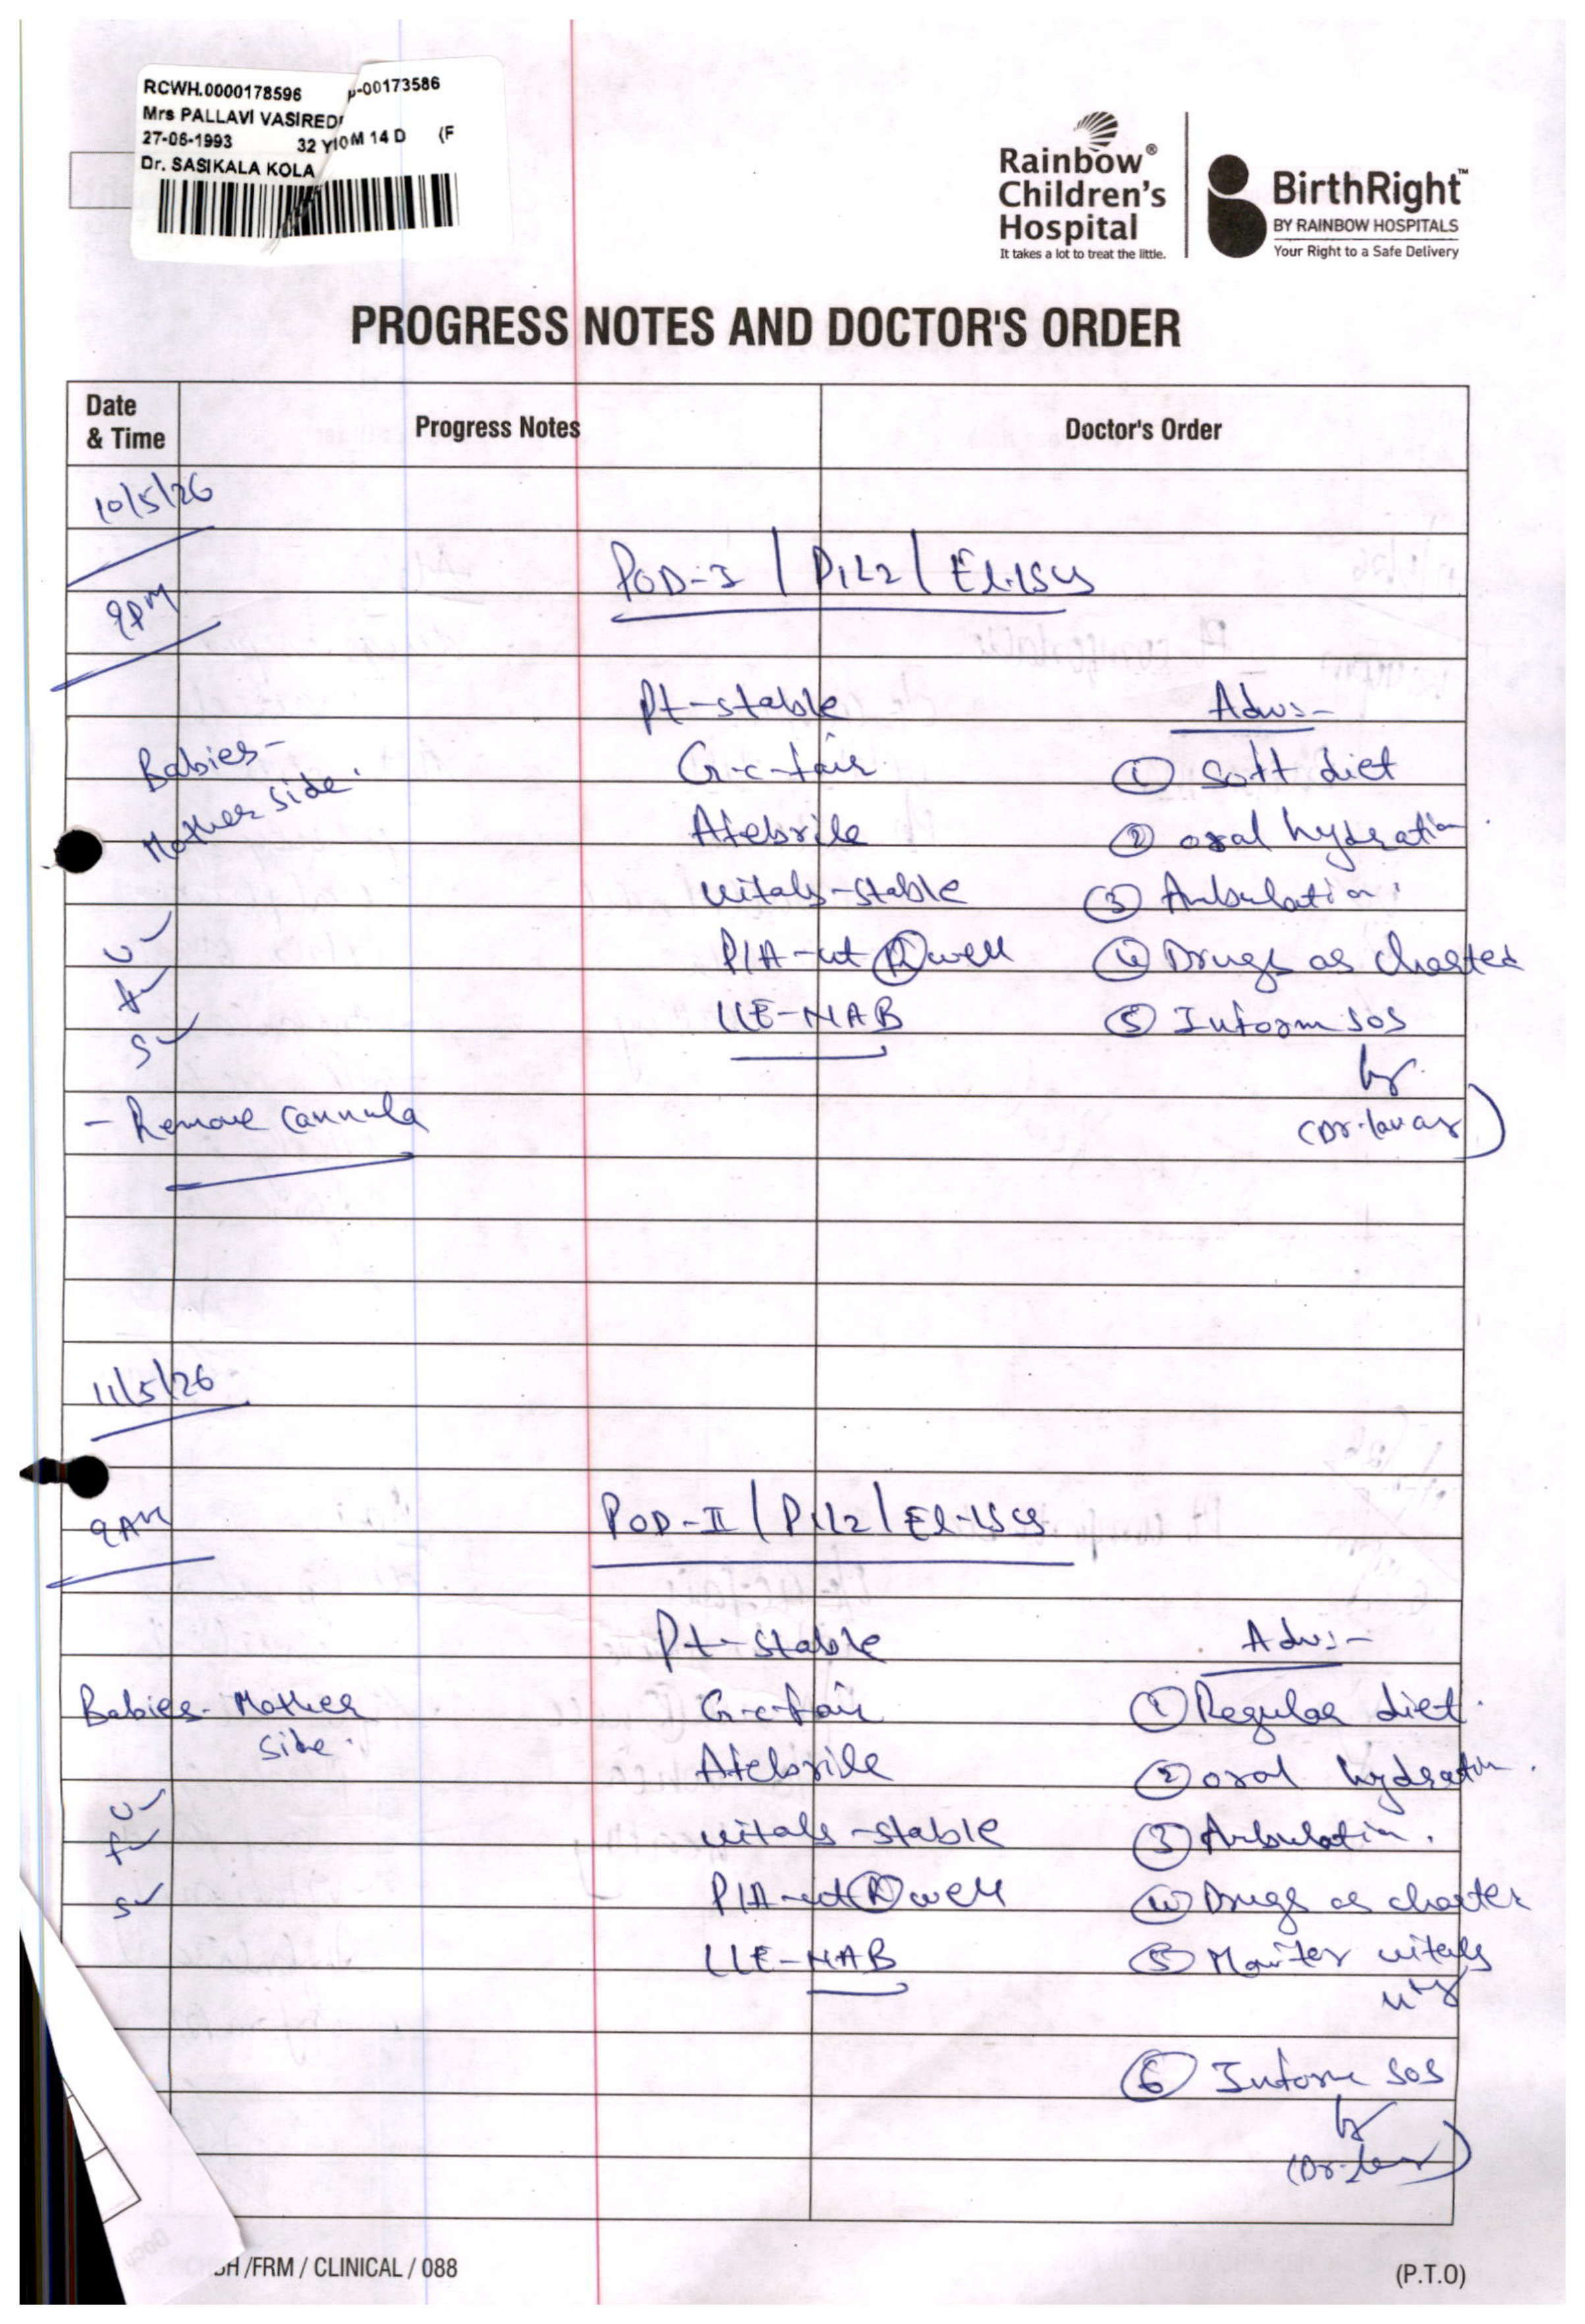 RCWH.0000178596 -00173586
Mrs PALLAVI VASIRED
27-06-1993 32 Y 10M 14 D (F
Dr. SASIKALA KOLA
Rainbow®
Children's
Hospital
It takes a lot to treat the little.
BirthRight™
BY RAINBOW HOSPITALS
Your Right to a Safe Delivery
PROGRESS NOTES AND DOCTOR'S ORDER
Date & Time Progress Notes Doctor's Order
10/5/26
9PM
POD-I / P1L2 / El.LSCS
Pt-stable Adv:-
Babies- G-c-fair ① Soft diet
Mother side. Afebrile ② oral hydration.
vitals-stable ③ Ambulation.
U✓ P/A-ut Ⓡ well ④ Drugs as charted
F✓
S✓ L/E-NAB ⑤ Inform SOS
- Remove cannula
11/5/26
9AM
POD-II / P1L2 / El-LSCS
Pt-stable Adv:-
Babies- Mother G-c-fair ① Regular diet.
side. Afebrile ② oral hydration.
U✓
F✓ vitals-stable ③ Ambulation.
S✓ P/A-ut Ⓡ well ④ Drugs as charted
L/E-NAB ⑤ Moniter vitals
⑥ Inform SOS
/FRM / CLINICAL / 088
(P.T.O)